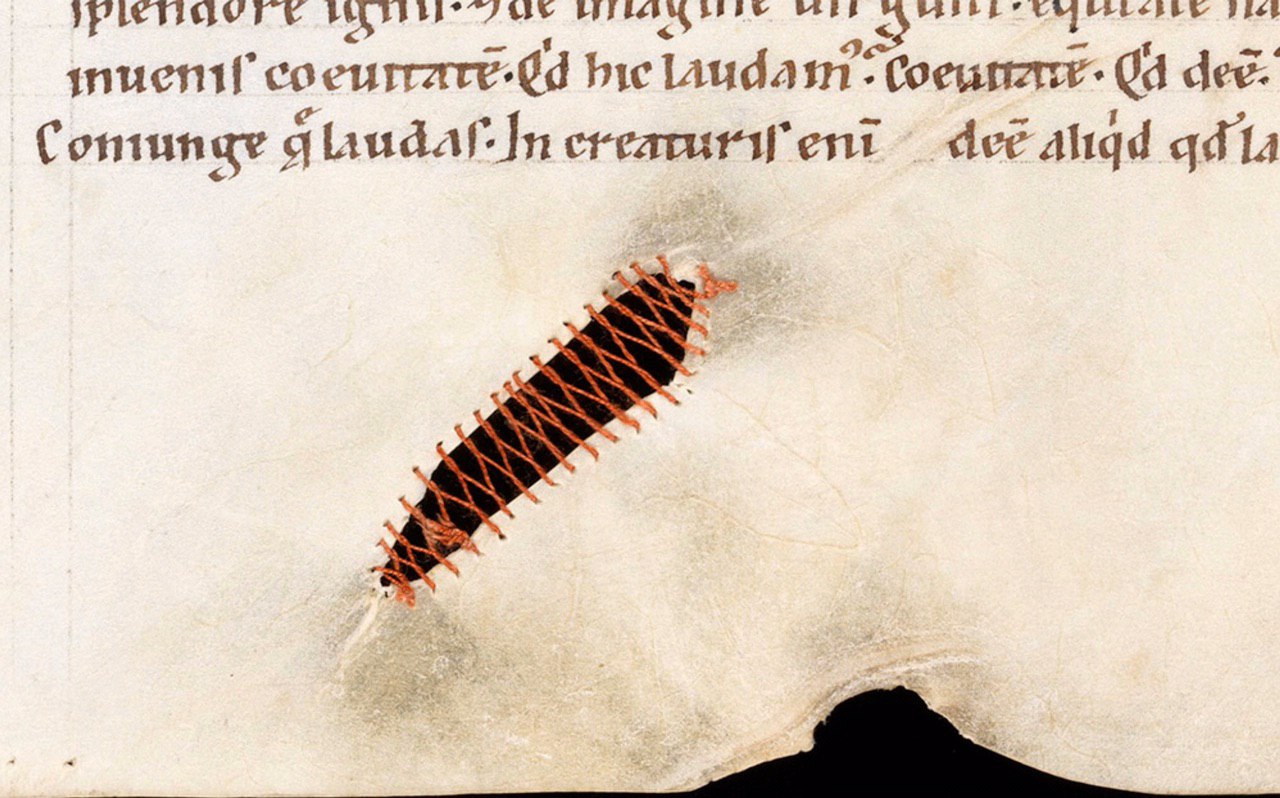 splendore ignis. ⁊ de imagine uirgulti.
inuenis coeuitatē. Qd hic laudam᾿. Coeuitatē. Qd deē.
Coniunge q laudas. In creaturis enī deē aliqd qd la